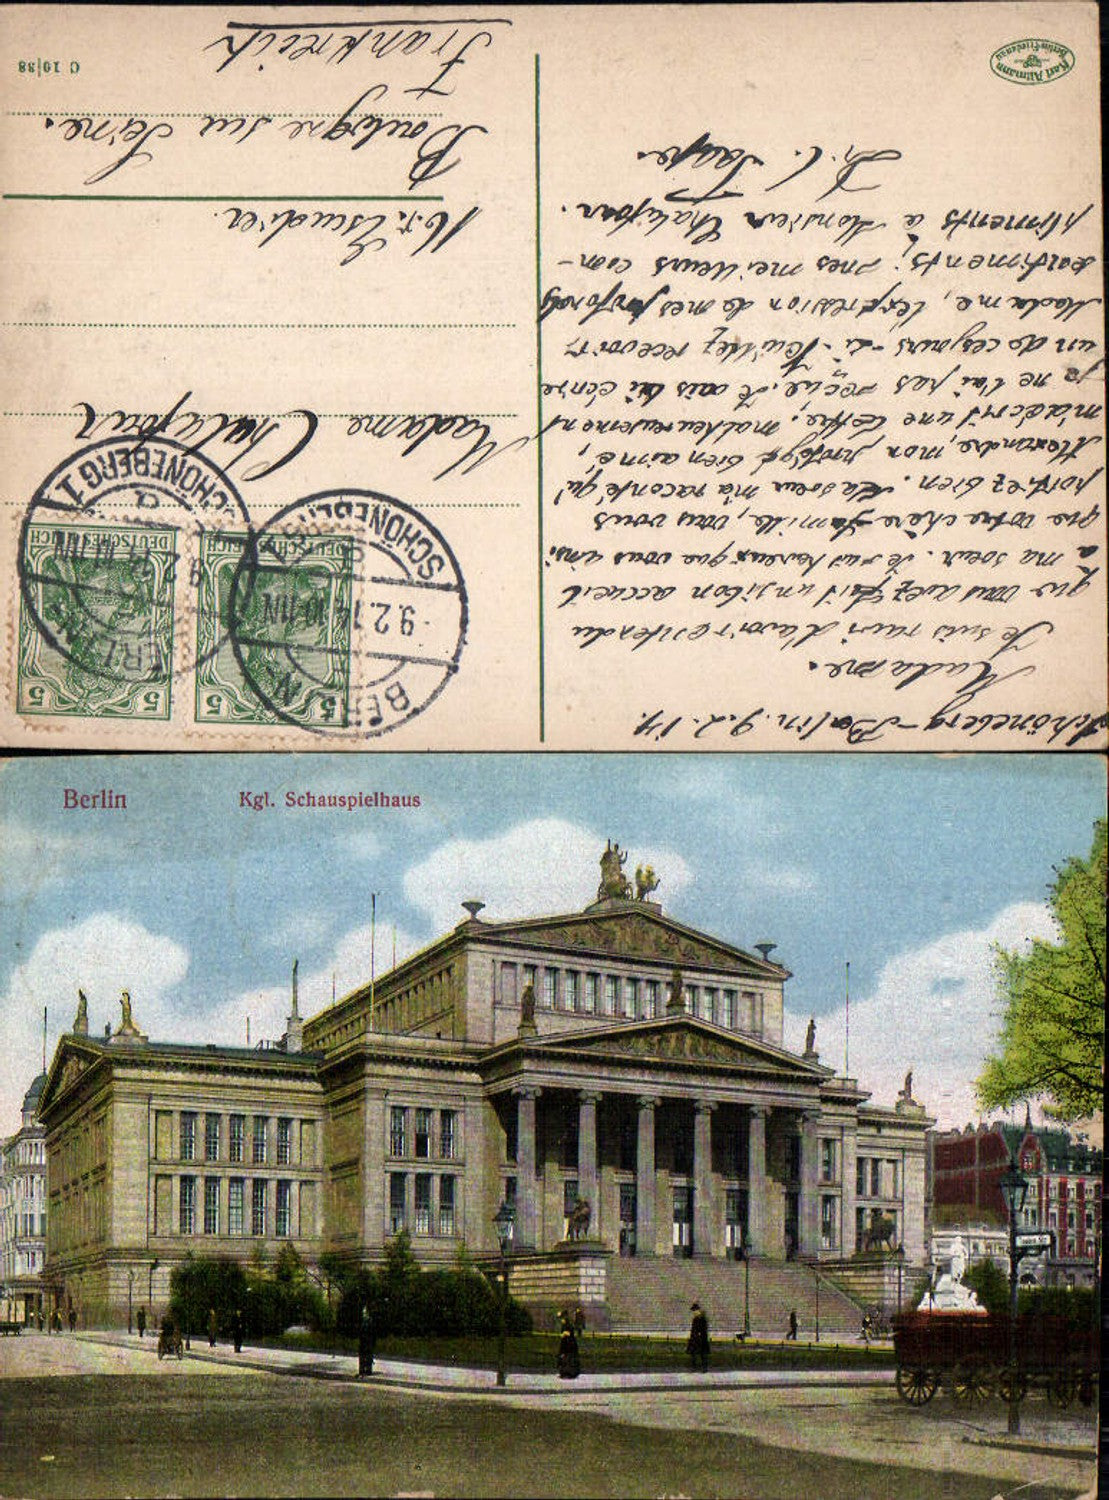 Schöneberg-Berlin. 9.2.14.
Madame.
Je suis ravi d'avoir entendu
que vous avez fait un si bon accueil
à ma soeur. Je suis heureux que vous ainsi
que votre chère famille, vous vous
portiez bien. Ma soeur m'a raconté qu'
Alexandre, mon protégé bien aimé,
m'a écrit une lettre; malheureusement
je ne l'ai pas reçue. Je vais lui écrire
un de ces jours-ci. Veuillez recevoir,
Madame, l'expression de mes profonds
sentiments; mes meilleurs com-
pliments à Monsieur Chalufour.
Karl Altmann
Berlin-Friedenau
5 5
DEUTSCHES REICH DEUTSCHES REICH
BERLIN-SCHÖNEBERG 1
9.2.14.10-11N
a
BERLIN-SCHÖNEBERG
9.2.14.10-11N
Madame Chalufour
16 r. Escudier
Boulogne sur Seine.
Frankreich
C 19|38
Berlin
Kgl. Schauspielhaus